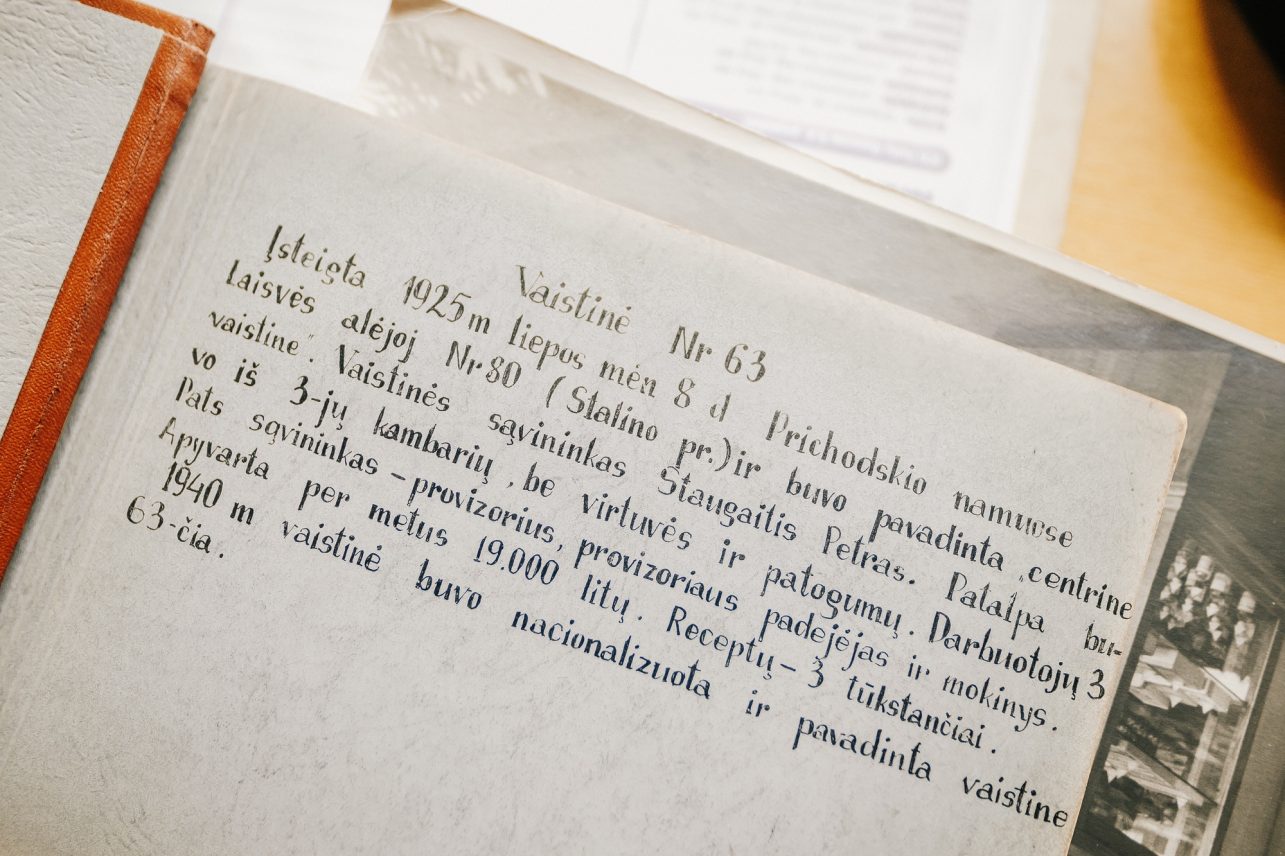 Vaistinė Nr 63
Įsteigta 1925 m liepos mėn 8 d Prichodskio namuose
Laisvės alėjoj Nr 80 (Stalino pr.) ir buvo pavadinta „centrine
vaistine". Vaistinės sąvininkas Staugaitis Petras. Patalpa bu-
vo iš 3-jų kambarių, be virtuvės ir patogumų. Darbuotojų 3
Pats sąvininkas – provizorius, provizoriaus padejėjas ir mokinys.
Apyvarta per metus 19.000 litų. Receptų – 3 tūkstančiai.
1940 m vaistinė buvo nacionalizuota ir pavadinta vaistine
63-čia.